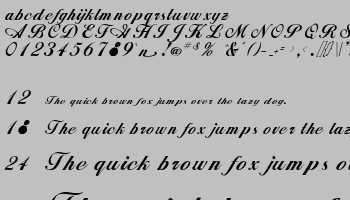 abcdefghijklmnopqrstuvwxyz
ABCDEFGHIJKLMNOPQRS
0123456789
12 The quick brown fox jumps over the lazy dog.
18 The quick brown fox jumps over the laz
24 The quick brown fox jumps o